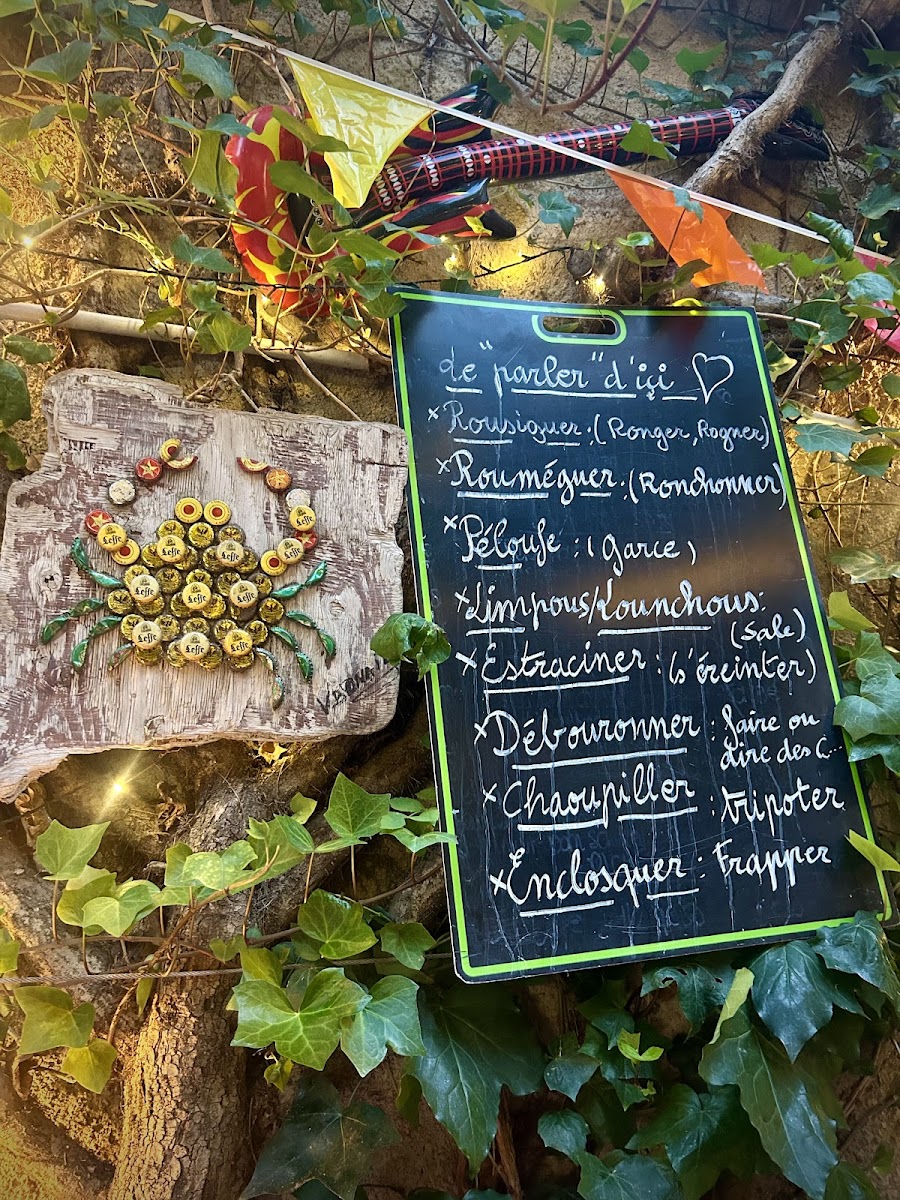 Le "parler" d'içi
x Rousiguer : (Ronger, Rogner)
x Rouméguer : (Ronchonner)
x Péloufe : (Garce)
x Limpous/Lounchous :
(Sale)
x Estraciner : (s'éreinter)
x Débouronner : faire ou
dire des C...
x Chaoupiller : tripoter
x Enclosquer : Frapper
Leffe
Leffe
Leffe
Leffe
Leffe
Leffe
Leffe
Leffe
Leffe
Leffe
Leffe